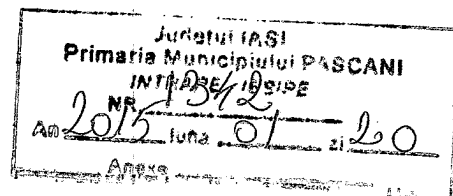 Judetul IASI
Primaria Municipiului PASCANI
INTRARE / IESIRE
NR. 1342
An 2015 luna 01 zi 20
Anexe